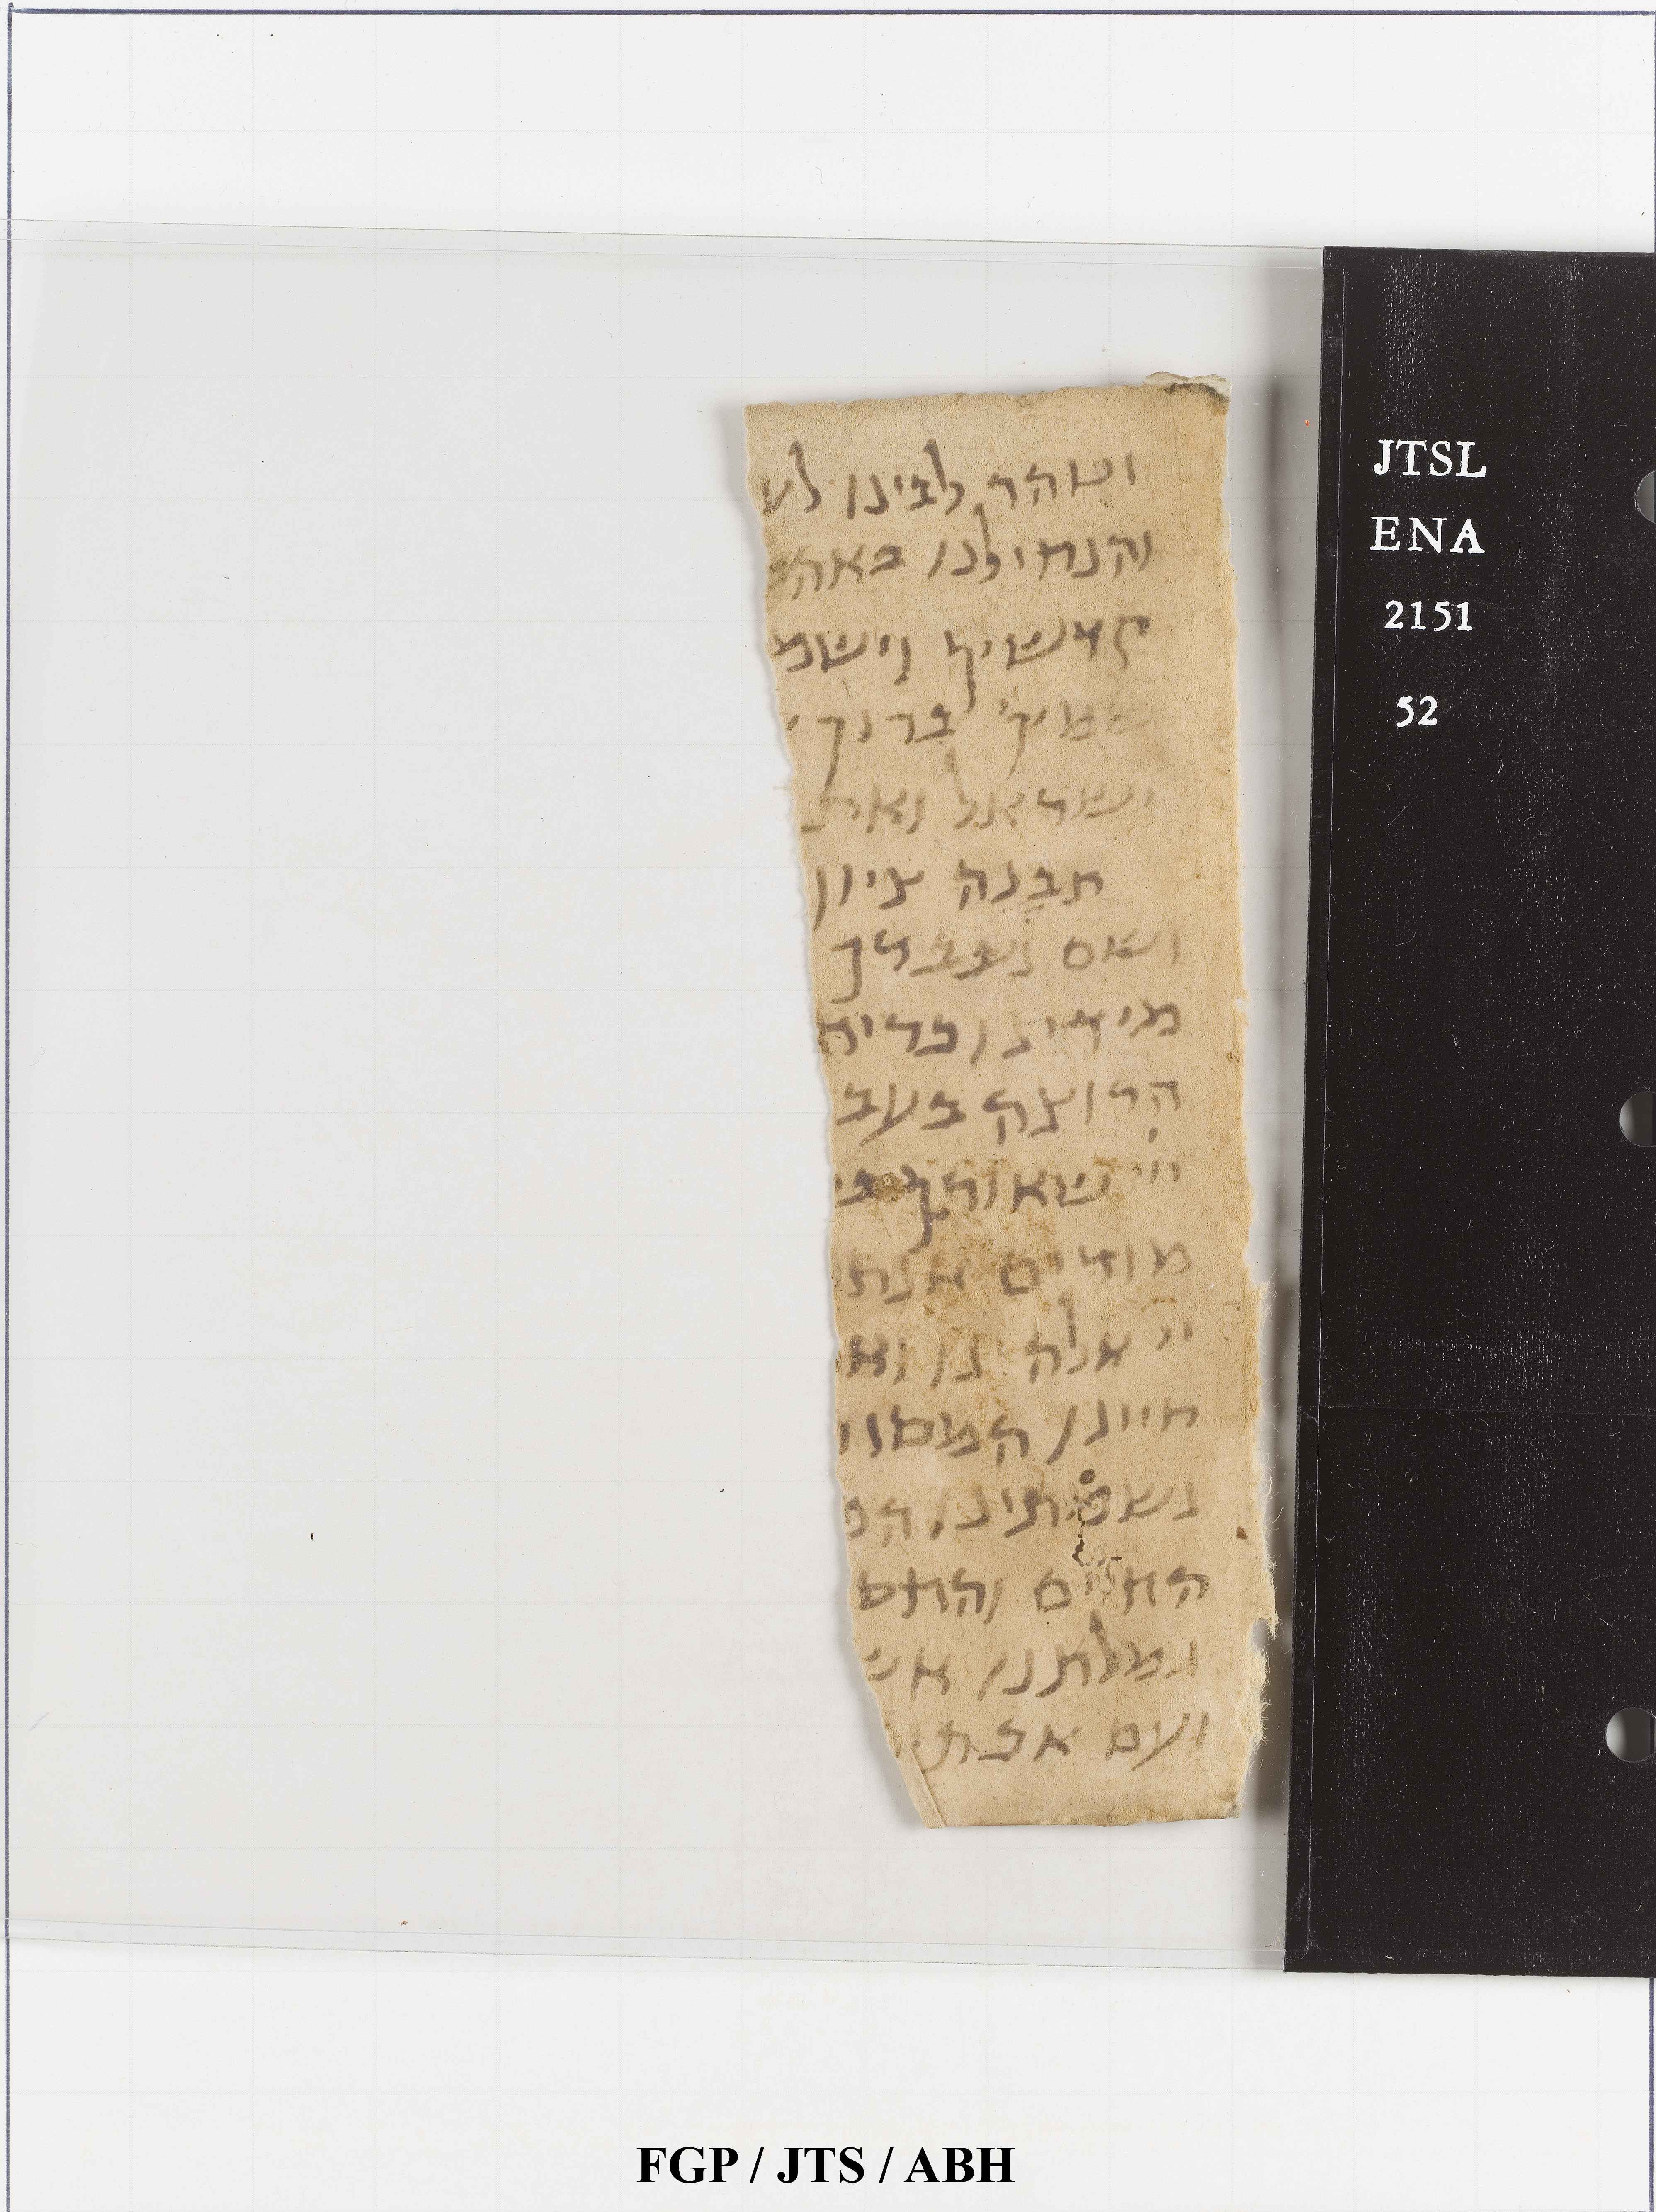 וטהר לבינו לע
והנחילנו באהב
קדשיך וישמ
שמיך ברוך
ישראל ואת
תבנה ציון
ושם נעבדך
מידינו כריח
הרוצה בעב
ייי שאותך
מודים אנח
ייי אלהינו וא
חיינו המסור
נשמתינו הפ
החיים והחס
גמלתנו אש
ועם אבתי
JTSL
ENA
2151
52
FGP / JTS / ABH